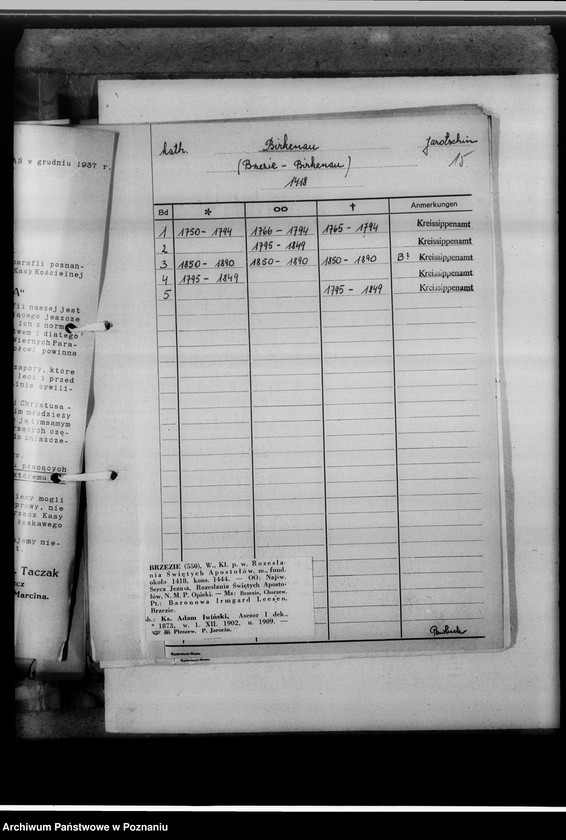 ań w grudniu 1937 r.
parafii poznań-
Kasy Kościelnej
A"
fii naszej jest
jącego jeszcze
ich z norm
twem i dlatego
wiernych Para-
powinna
zapory, które
lecz i przed
cywili-
i Chrystusa -
im młodzieży
ja tymsamym
zniszcze-
płacących
któremu
mogli
prawy, nie
rzecz Kasy
łaskawego
ajemy nie-
t.
Taczak
Marcina.
kath. Birkenau Jarotschin
(Brzezie - Birkenau) 15
1418
Bd * oo † Anmerkungen
1 1750 - 1794 1766 - 1794 1765 - 1794 Kreissippenamt
2 1795 - 1849 Kreissippenamt
3 1850 - 1890 1850 - 1890 1850 - 1890 B: Kreissippenamt
4 1795 - 1849 Kreissippenamt
5 1795 - 1849 Kreissippenamt
BRZEZIE (550), W., Kl. p. w. Rozesła-
nia Świętych Apostołów, m., fund.
około 1418, kons. 1444. — OO: Najśw.
Serca Jezusa, Rozesłania Świętych Aposto-
łów, N. M. P. Opieki. — Ms: Brzezie, Chorzew.
Pt.: Baronowa Irmgard Leesen,
Brzezie.
Ks. Adam Iwiński, Asesor I dek.,
* 1873, w. 1. XII. 1902, u. 1909. —
Pleszew. P. Jarocin.
Archiwum Państwowe w Poznaniu